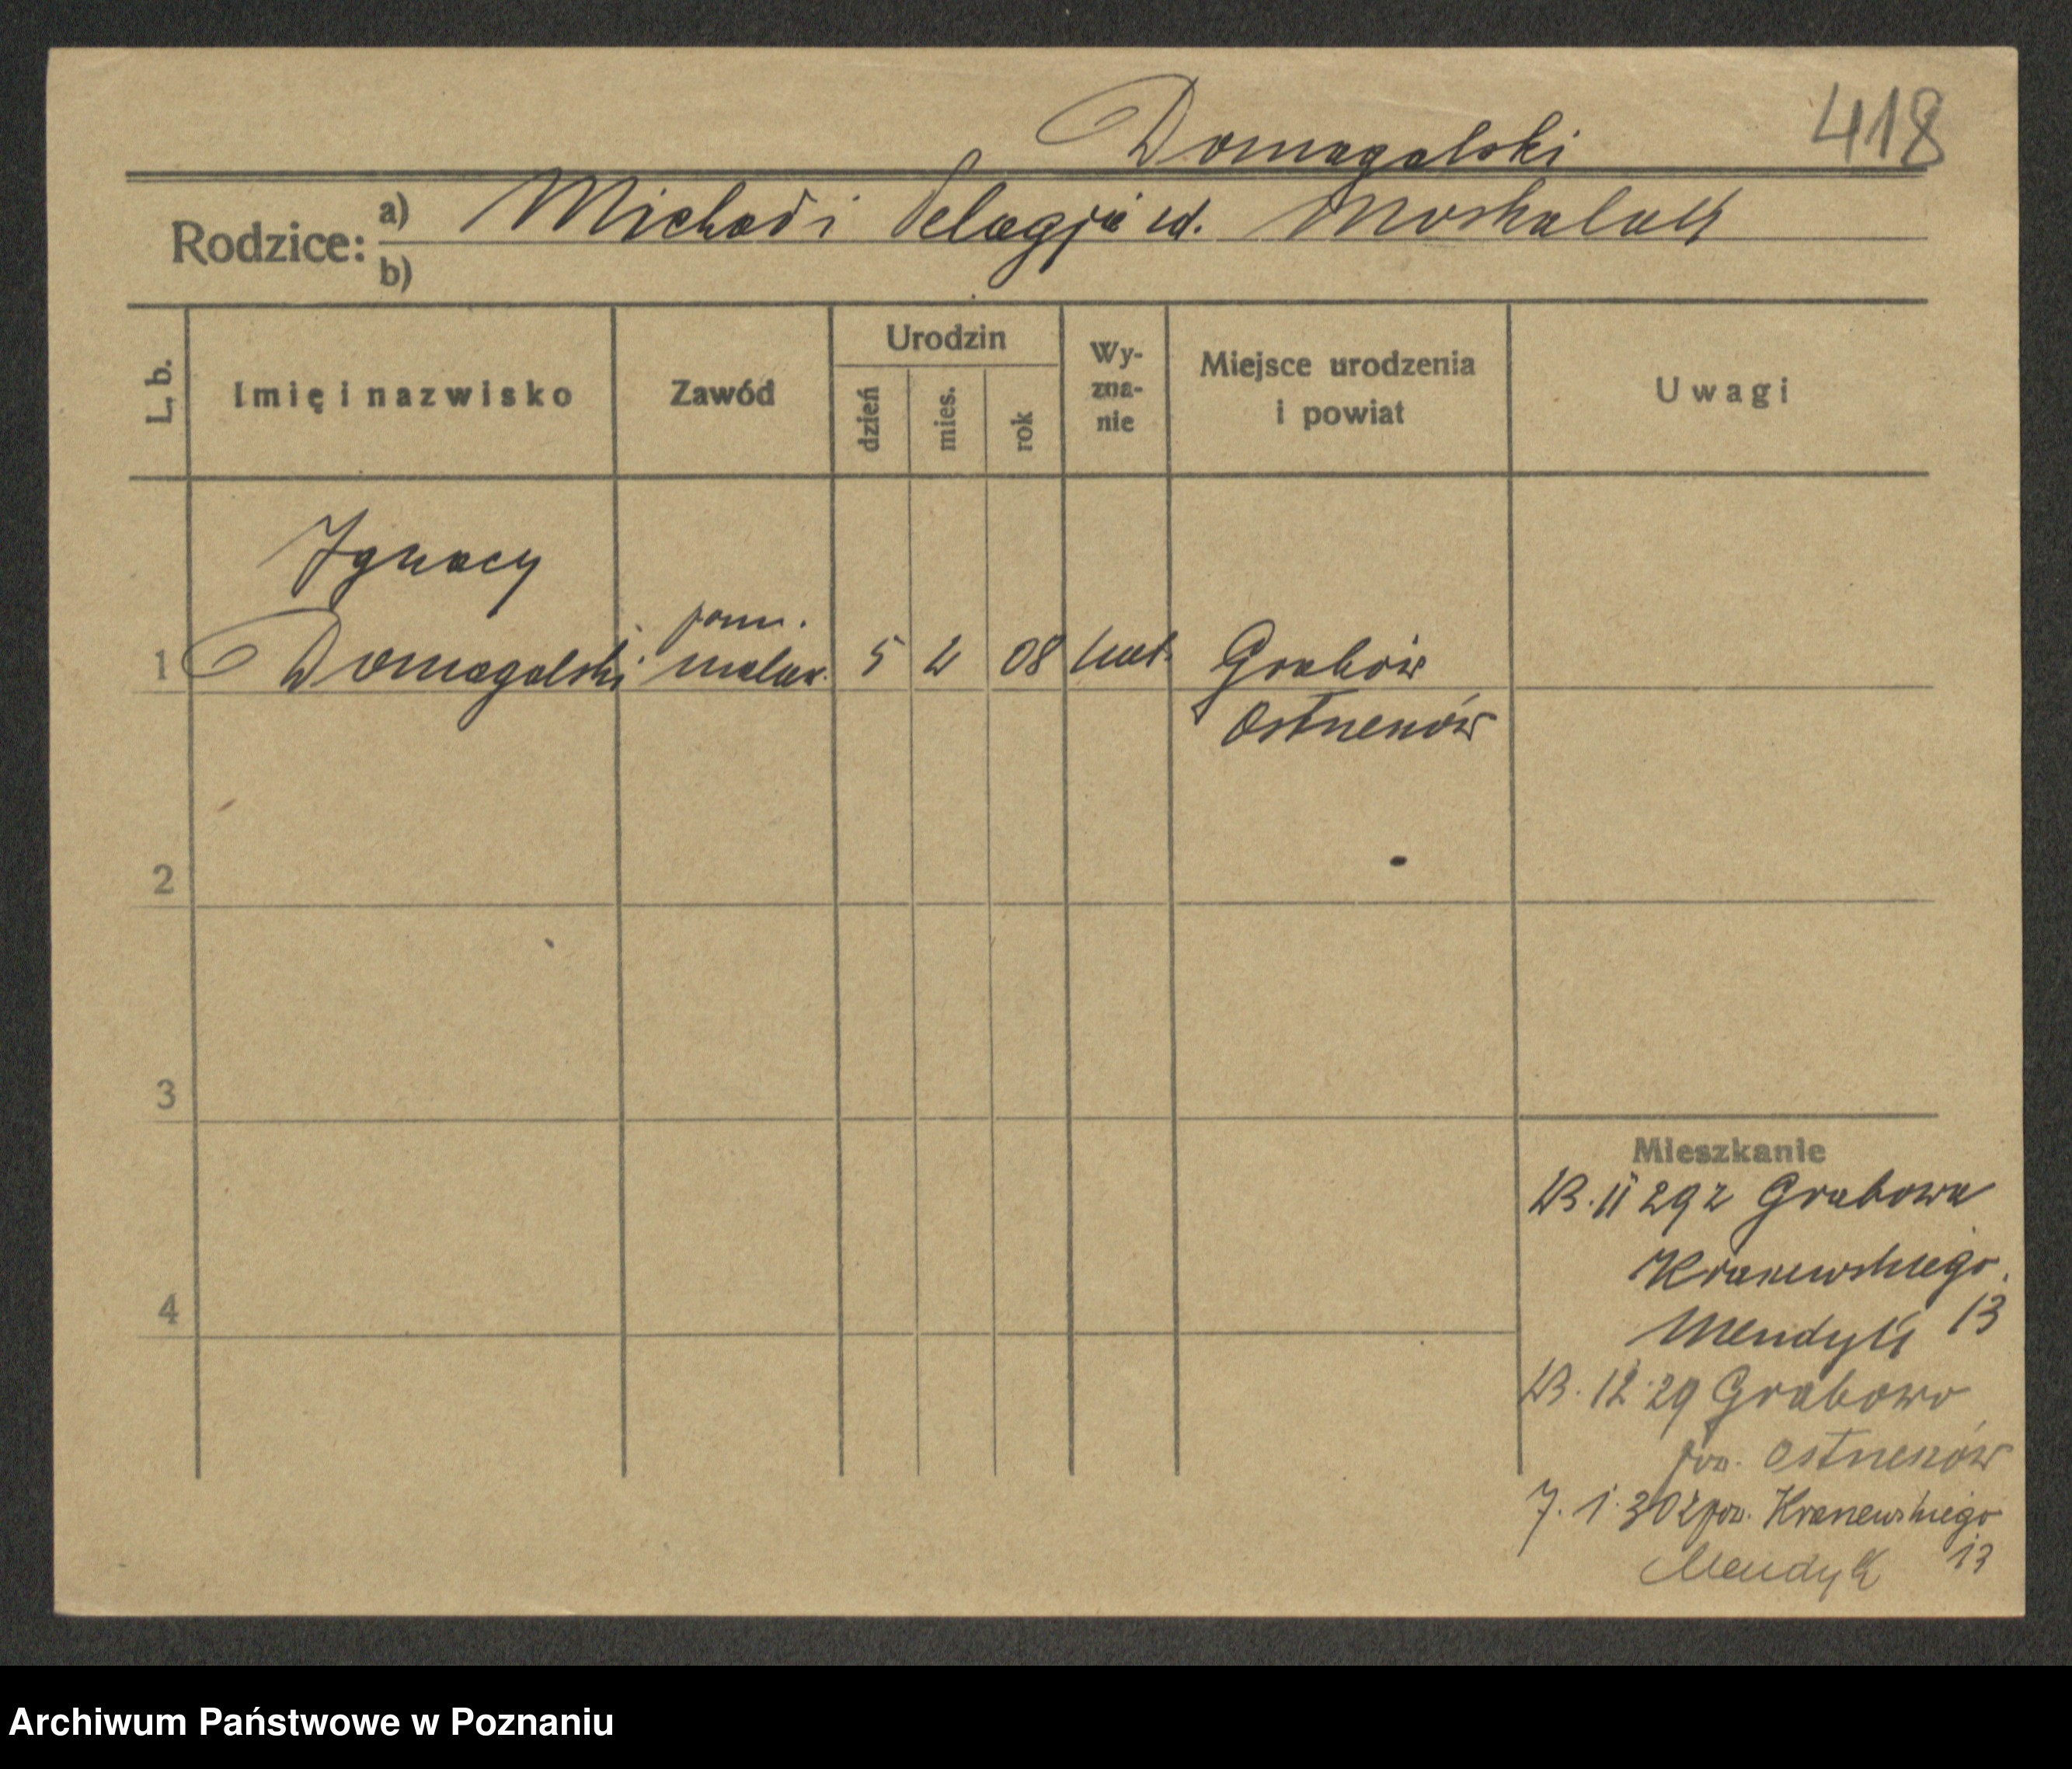 418
Domagalski
Rodzice:
a) Michał i Pelagja zd. Moskaluk
b)
L. b.
Imię i nazwisko
Zawód
Urodzin
dzień
mies.
rok
Wy-
zna-
nie
Miejsce urodzenia
i powiat
Uwagi
Ignacy
pom.
1 Domagalski malar. 5 2 08 kat. Grabów
Ostrzeszów
2
3
4
Mieszkanie
23. 11 29 z Grabowa
Kraszewskiego
Mendyk 13
23. 12 29 Grabowo
pow.
7. 1. 30 z pow. Kraszewskiego
Mendyk 13
Archiwum Państwowe w Poznaniu